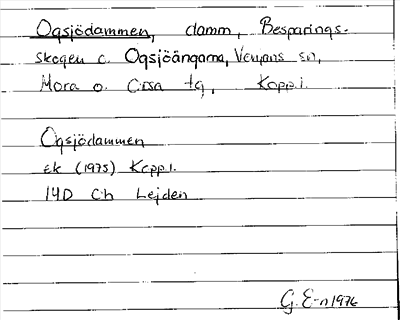 Oqsjödammen, damm, Besparings-
skogen c. Oqsjöängarna, Venjans sn,
Mora o. Orsa tg, Kopp.l.
Oqsjödammen
ek (1975) Kopp.l.
14D Ch Lejden
G. E-n 1976